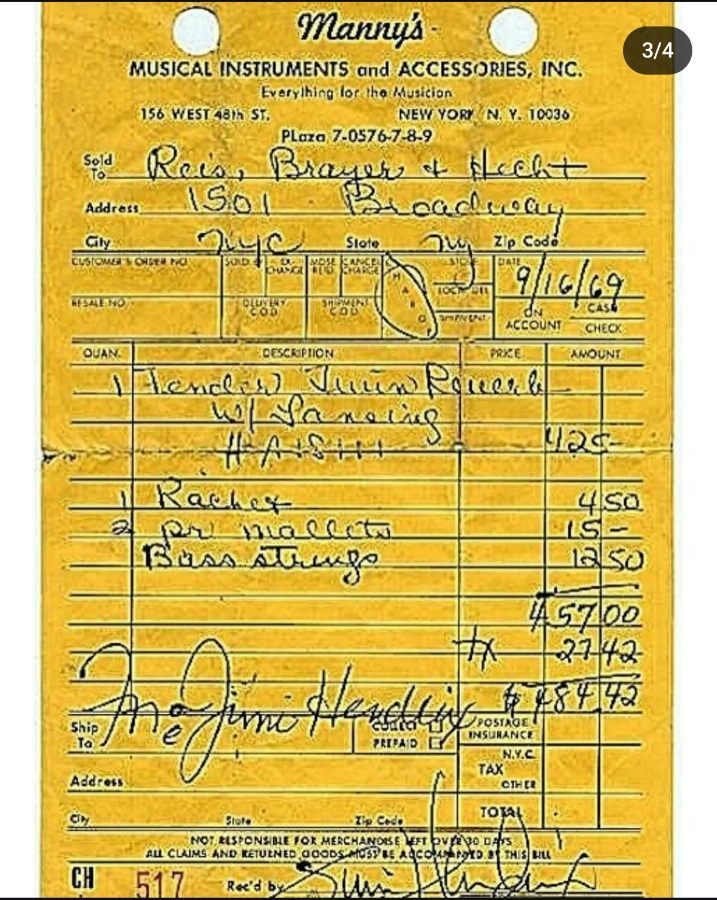 3/4
Manny's
MUSICAL INSTRUMENTS and ACCESSORIES, INC.
Everything for the Musician
156 WEST 48th ST. NEW YORK N. Y. 10036
PLaza 7-0576-7-8-9
Sold To Reis, Brayer & Hecht
Address 1501 Broadway
City NYC State NY Zip Code
CUSTOMER'S ORDER NO. SOLD EX-CHANGE MDSE. RETD. CANCEL CHARGE STORE DATE 9/16/69
LOCAL DEL.
RESALE NO. DELIVERY C.O.D. SHIPMENT C.O.D. SHIPMENT ON ACCOUNT CASH CHECK
QUAN. DESCRIPTION PRICE AMOUNT
1 Fender Twin Reverb
w/ Lansing
425-
1 Rachet 4 50
2 pr mallets 15-
Bass strings 12 50
457 00
tx 27 42
$ 484.42
Jimi Hendrix
Ship To COLLECT PREPAID POSTAGE INSURANCE
N.Y.C.
TAX
Address OTHER
City State Zip Code TOTAL
NOT RESPONSIBLE FOR MERCHANDISE LEFT OVER 30 DAYS
ALL CLAIMS AND RETURNED GOODS MUST BE ACCOMPANIED BY THIS BILL
CH 517 Rec'd by Jimi Hendrix